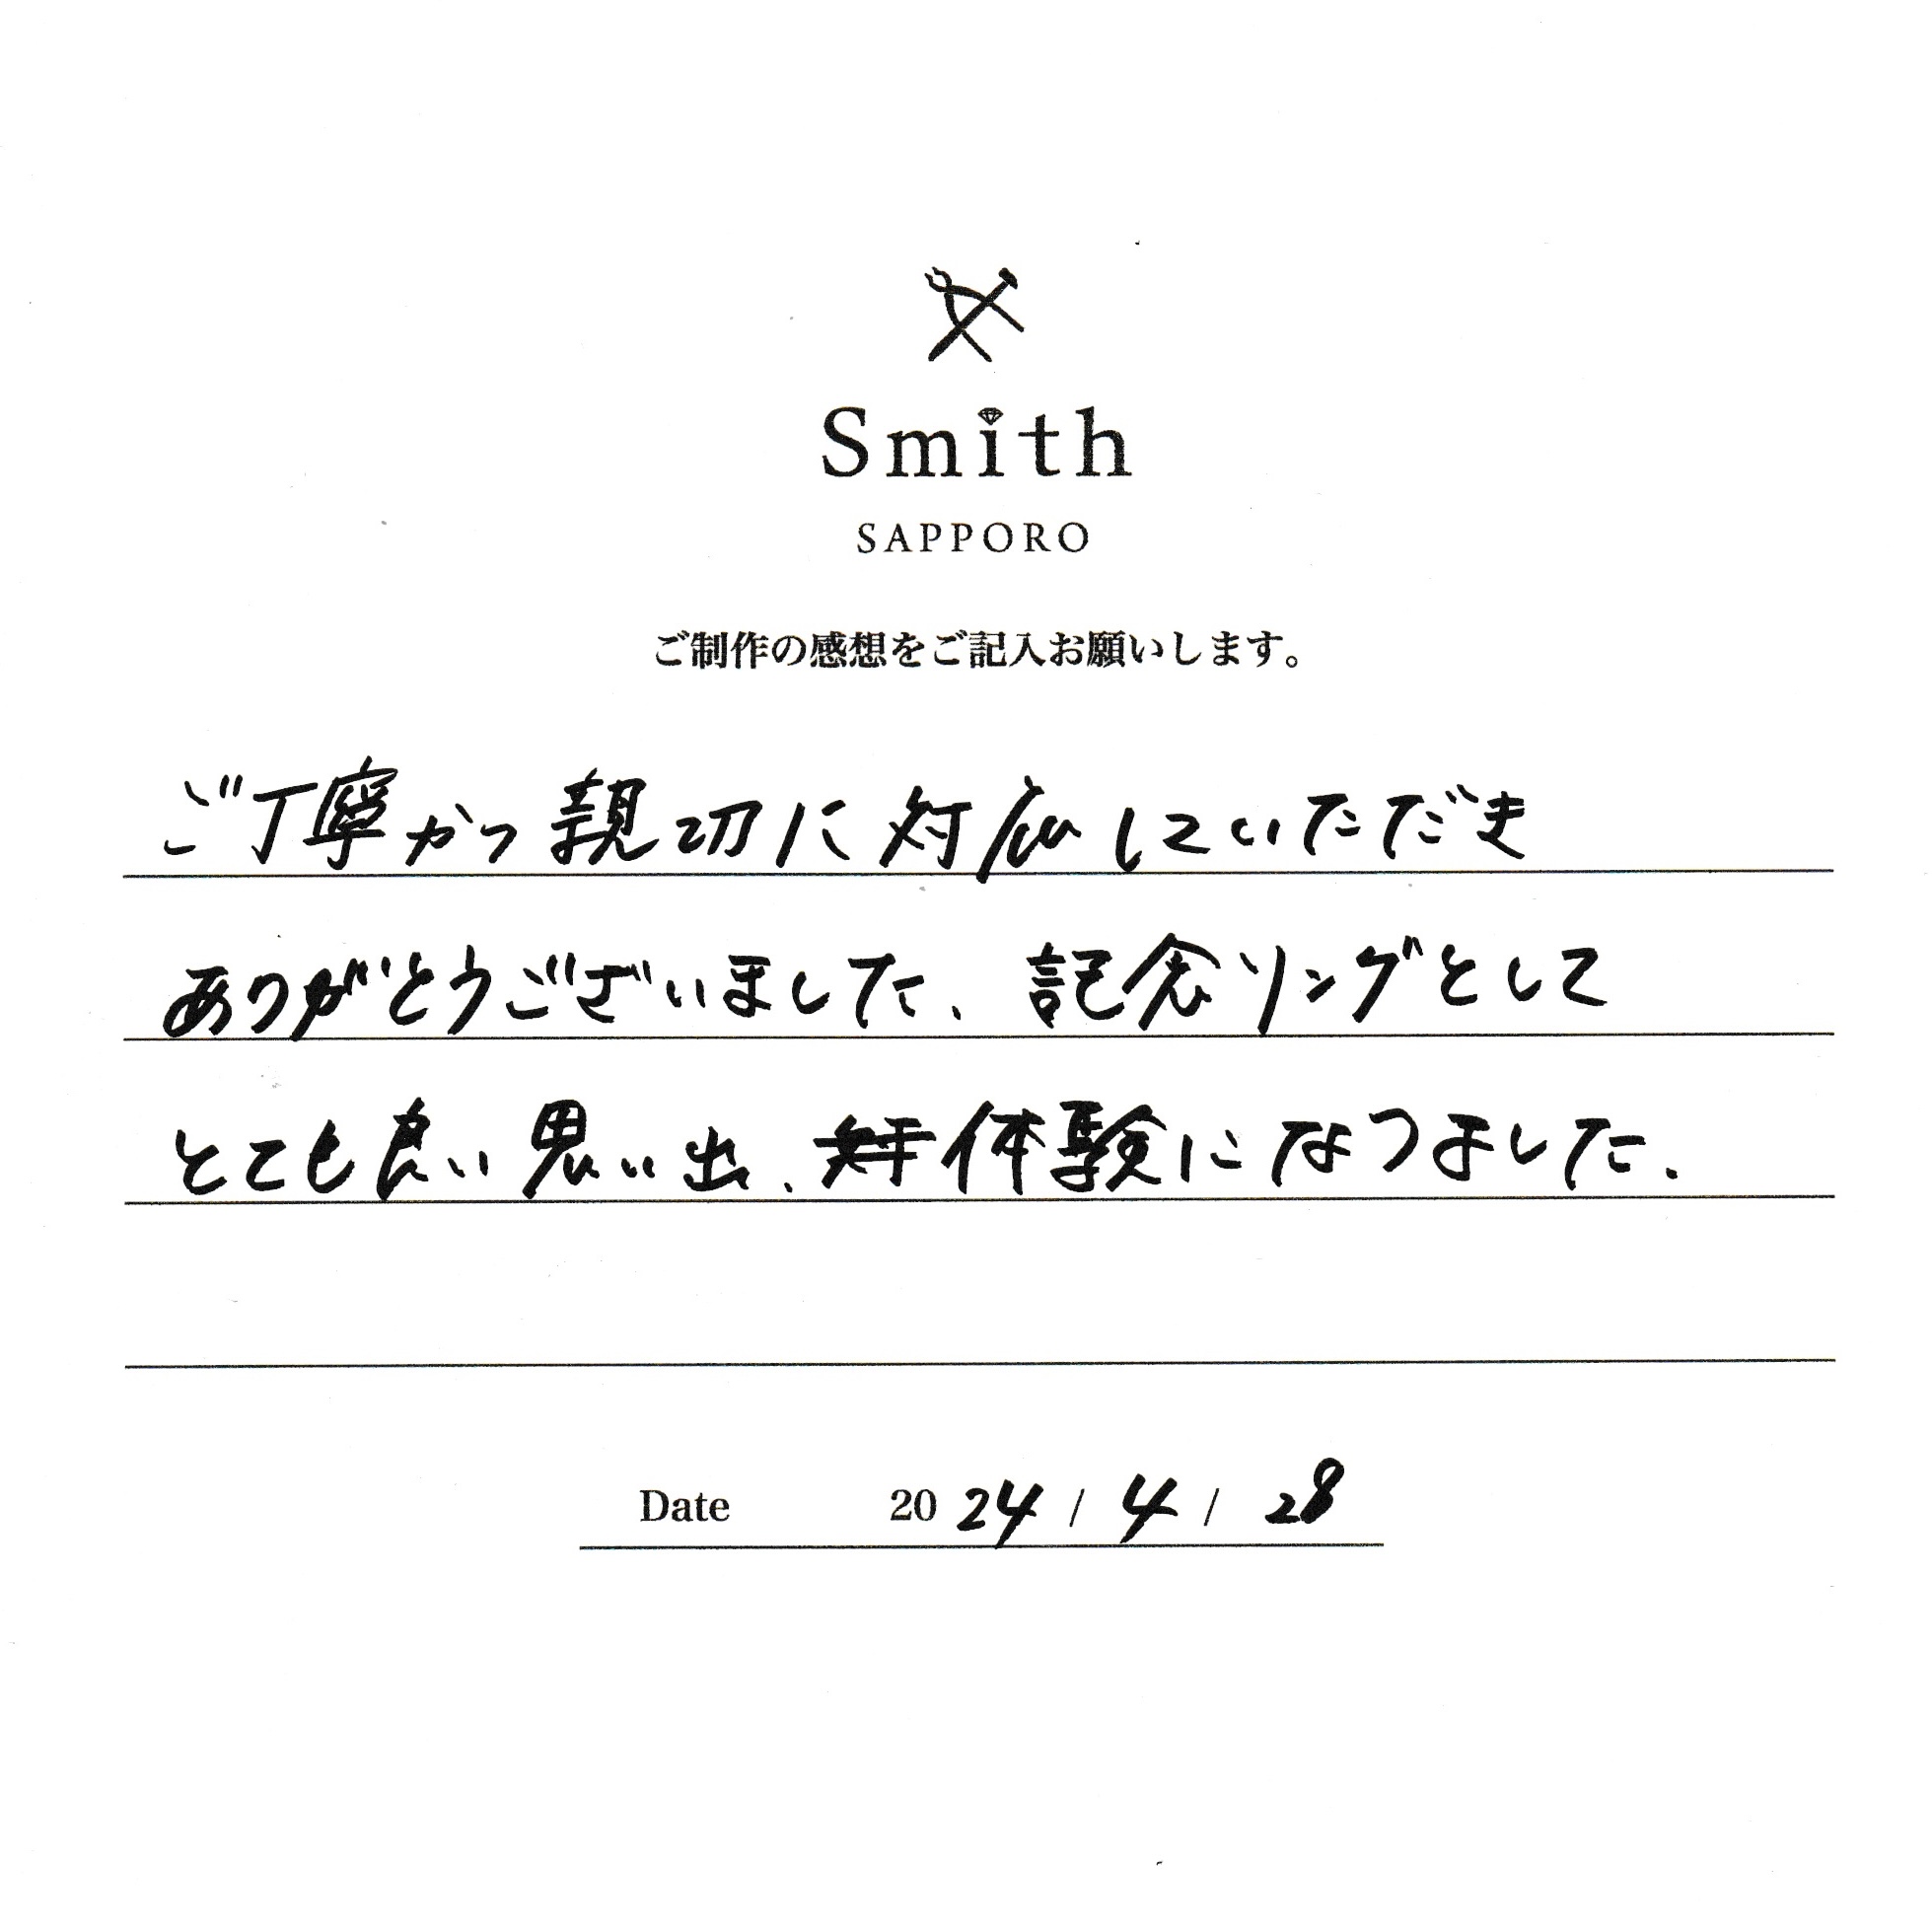 Smith
SAPPORO
ご制作の感想をご記入お願いします。
ご丁寧かつ親切に対応していただき
ありがとうございました、記念リングとして
とても良い思い出、体験になりました、
Date 2024 / 4 / 28